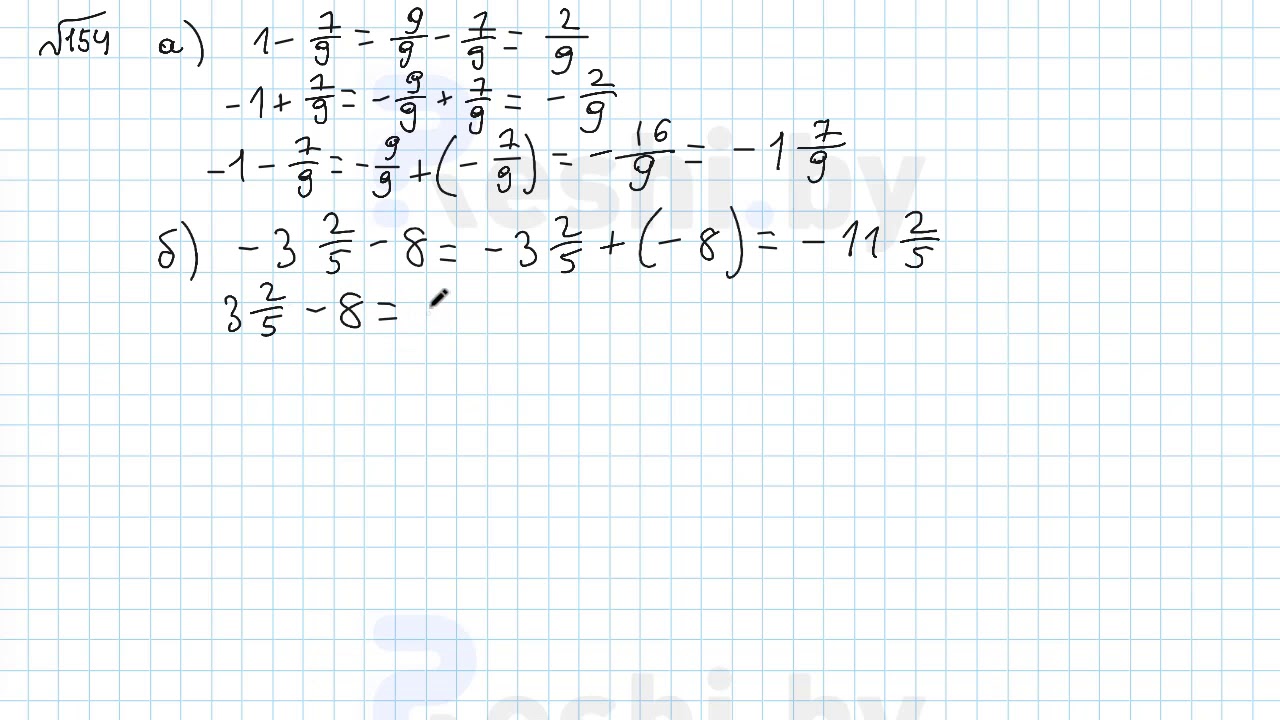 √154 а) 1 - 7/9 = 9/9 - 7/9 = 2/9
-1 + 7/9 = -9/9 + 7/9 = -2/9
-1 - 7/9 = -9/9 + (-7/9) = -16/9 = -1 7/9
б) -3 2/5 - 8 = -3 2/5 + (-8) = -11 2/5
3 2/5 - 8 =
Reshi.by
Reshi.by